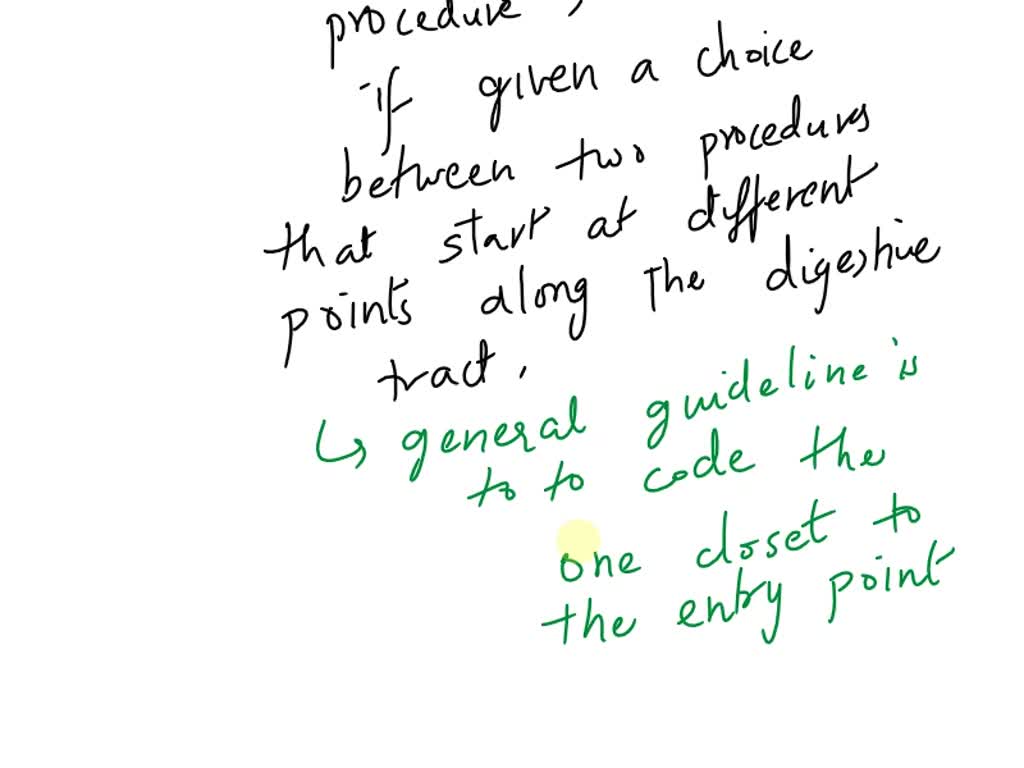 procedure,
if given a choice
between two procedures
that start at different
points along The digestive
tract.
↳ general guideline is
to to code the
one closet to
the entry point